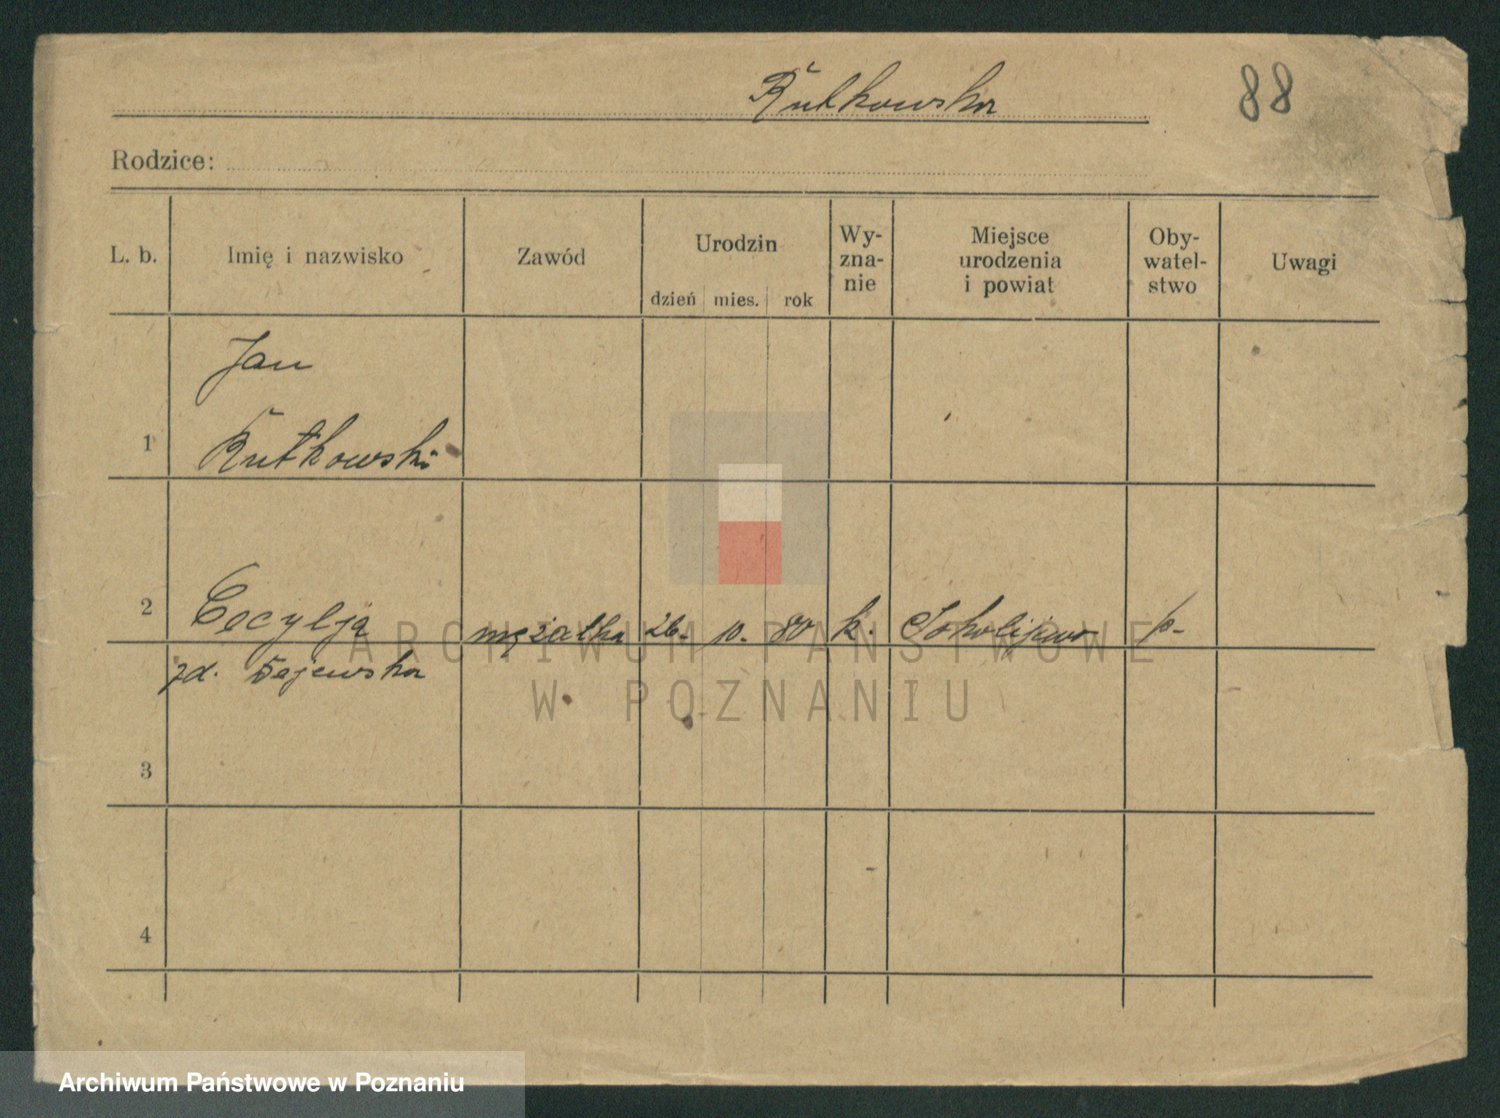 Rutkowska
88
Rodzice:
L. b.
Imię i nazwisko
Zawód
Urodzin
dzień mies. rok
Wy-
zna-
nie
Miejsce
urodzenia
i powiat
Oby-
watel-
stwo
Uwagi
Jan
1 Rutkowski
2 Cecylja mężatka 26. 10. 80 k. Sokolijewo p.
zd.
3
4
ARCHIWUM PAŃSTWOWE
W POZNANIU
Archiwum Państwowe w Poznaniu